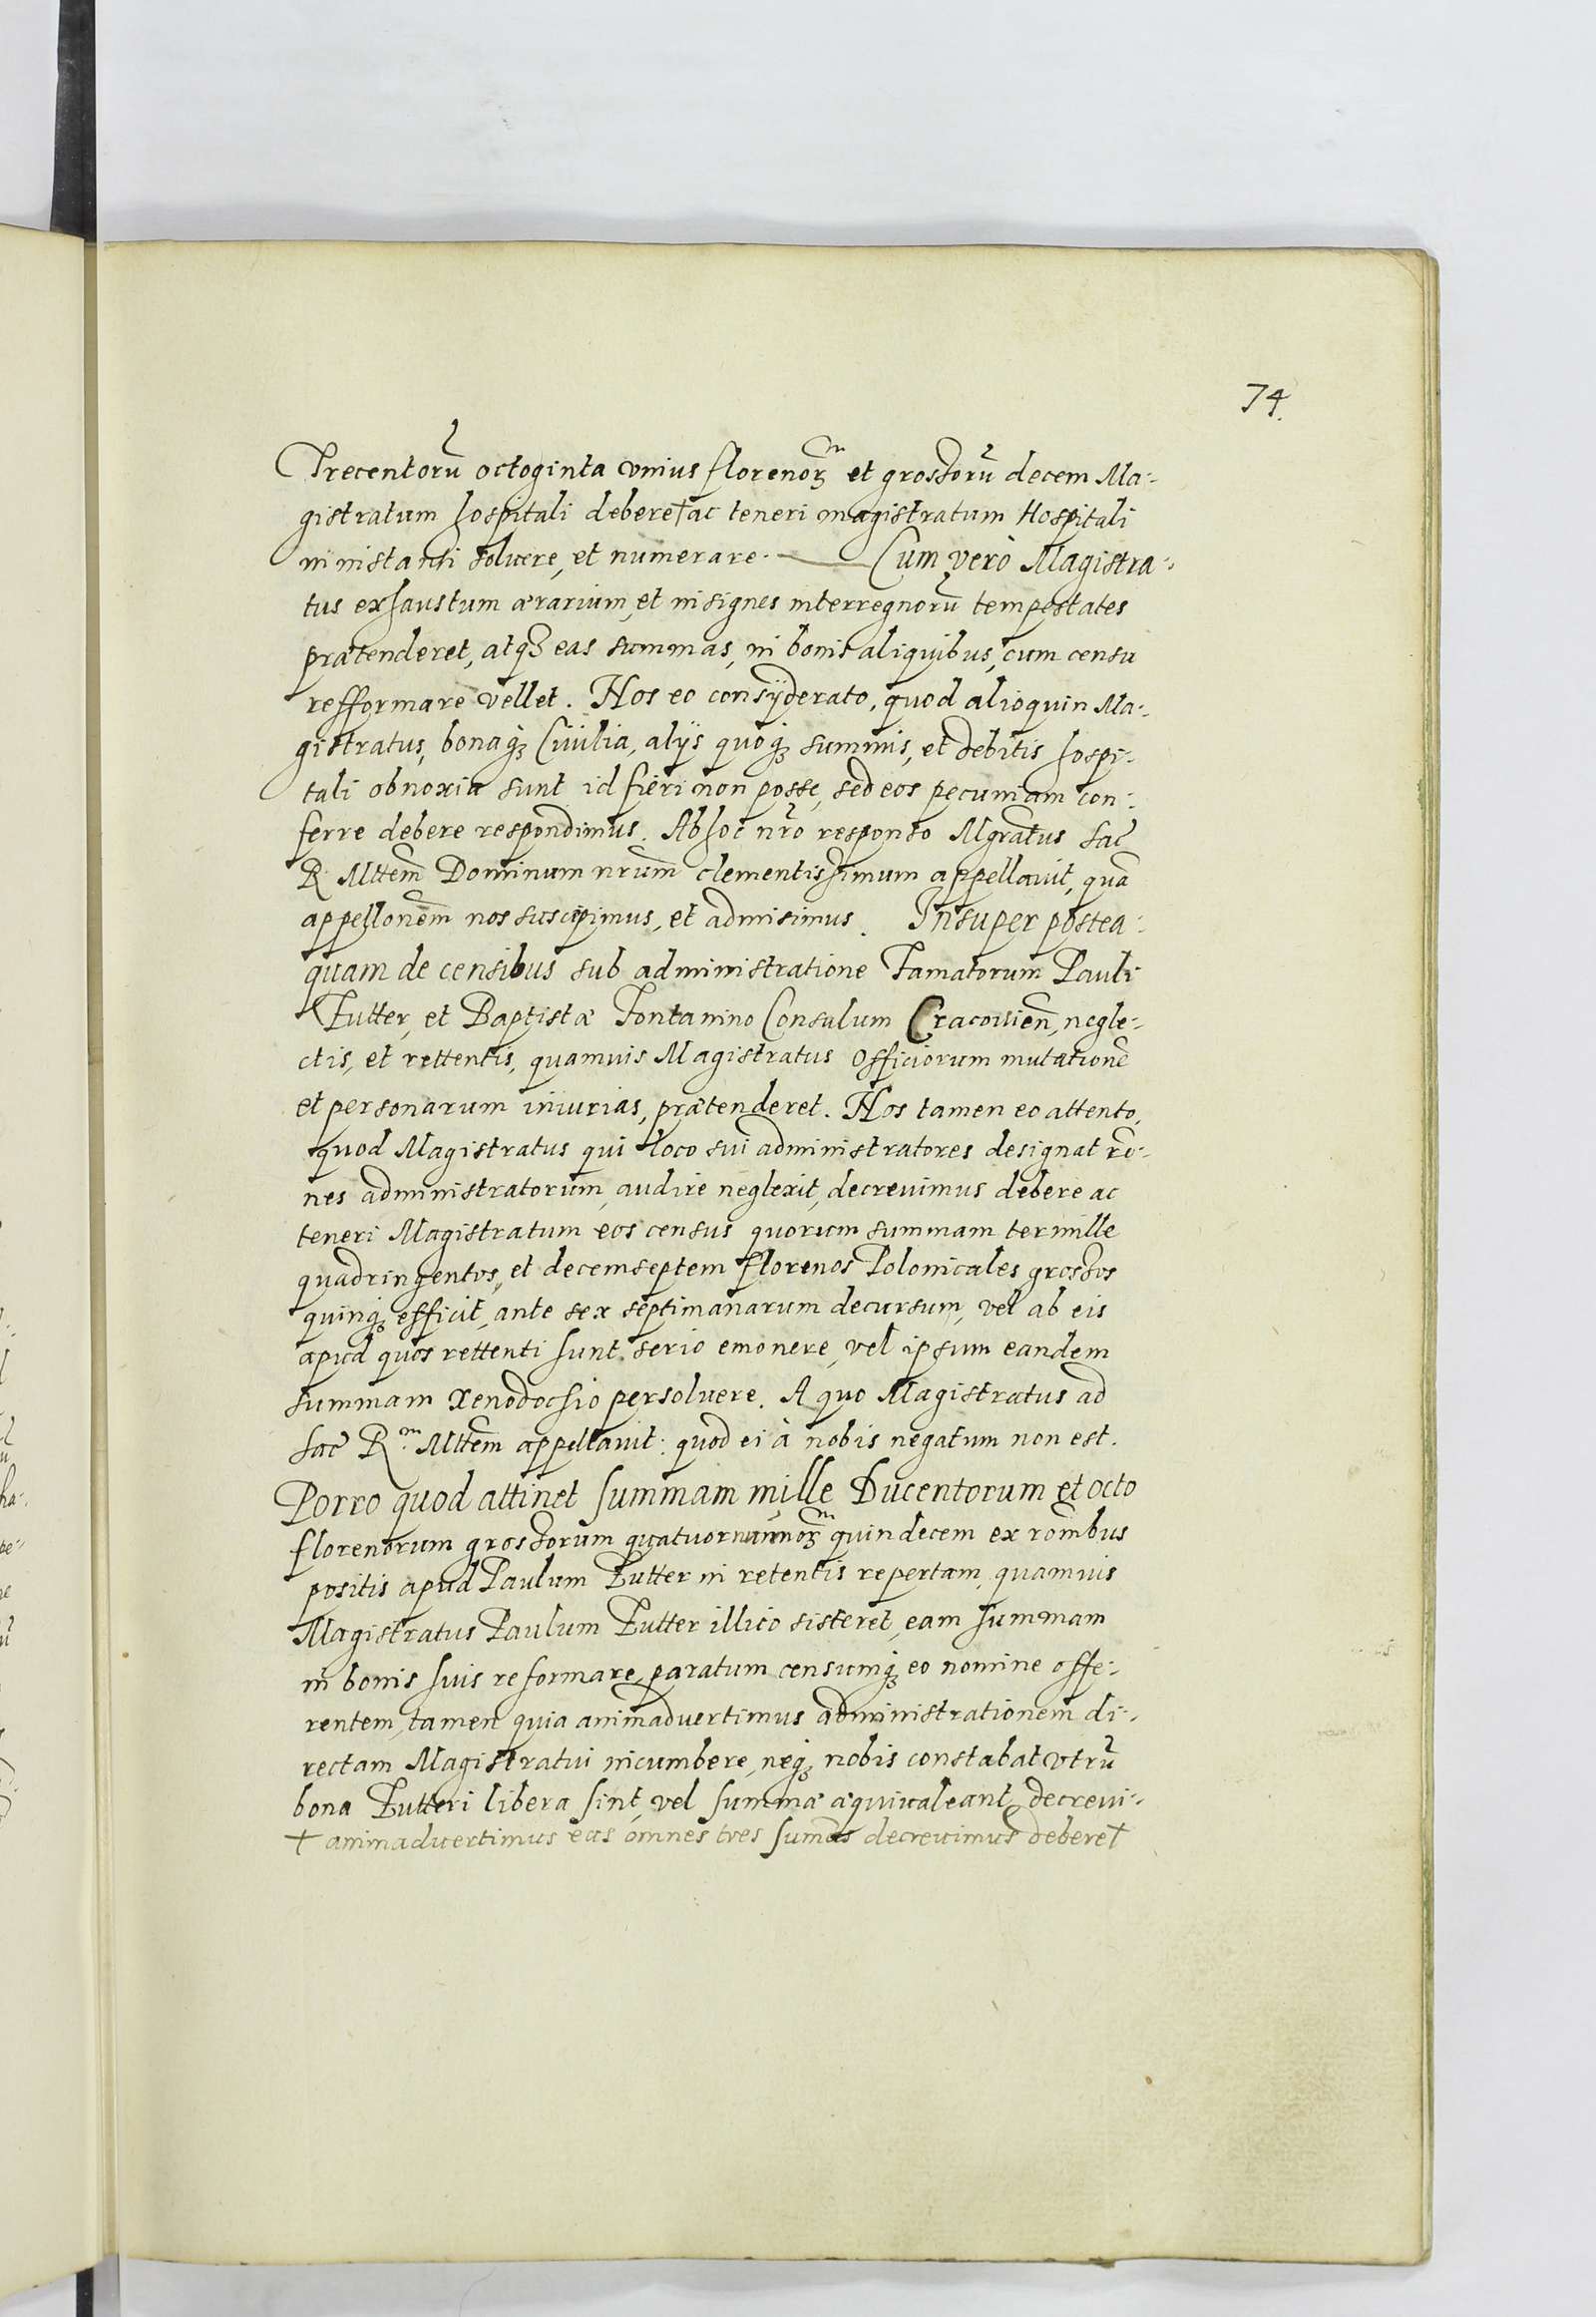 74.
Trecentorũ octoginta vnius florenorꝫ et grossorũ decem Ma-
gistratum hospitali debere † ac teneri magistratum Hospitali
in instanti soluere, et numerare. — Cum verò Magistra-
tus exhaustum ærarium, et insignes interregnorũ tempestates
prætenderet, atqꝫ eas summas, in bonis aliquibus, cum censu
refformare vellet. Nos eo consÿderato, quod alioquin Ma-
gistratus, bonaqꝫ Ciuilia, alÿs quoqꝫ summis, et debitis hospi-
tali obnoxia sunt id fieri non posse, sed eos pecuniam con-
ferre debere respondimus. Ab hoc nr̃o responso Mgrãtus Sac̃
R. Mttem̃ Dominum nrũm clementissimum appellauit, quã
appellonẽm nos suscipimus, et admisimus. Insuper postea-
quam de censibus sub administratione Famatorum Pauli
Zutter, et Baptistæ Fontanino Consulum Cracouieñ, negle-
ctis, et rettentis, quamuis Magistratus officiorum mutationẽ
et personarum iniurias, prætenderet. Nos tamen eo attento,
quod Magistratus qui loco sui administratores designat rõ-
nes administratorum, audire neglexit, decreuimus debere ac
teneri Magistratum eos census quorum summam ter mille
quadringentos, et decemseptem florenos Polonicales grossos
quinqꝫ efficit, ante sex septimanarum decursum, vel ab eis
apud quos rettenti sunt serio emonere, vel ipsum eandem
summam Xenodochio persoluere. A quo Magistratus ad
Sac̃ R.m Mttem̃ appellauit: quod ei à nobis negatum non est.
Porro quod attinet summam mille Ducentorum et octo
florenorum grossorum quatuor nũmorꝫ quindecem ex rõnibus
positis apud Paulum Zutter in retentis repertam, quamuis
Magistratus Paulum Zutter illico sisteret, eam summam
in bonis suis reformare paratum censumqꝫ eo nomine offe-
rentem, tamen quia animaduertimus administrationem di-
rectam Magistratui incumbere, neqꝫ nobis constabat vtrũ
bona Zutteri libera sint, vel summæ æquiualeant, decreui-
† animaduertimus eas omnes tres sum̃as decreuimus debere †